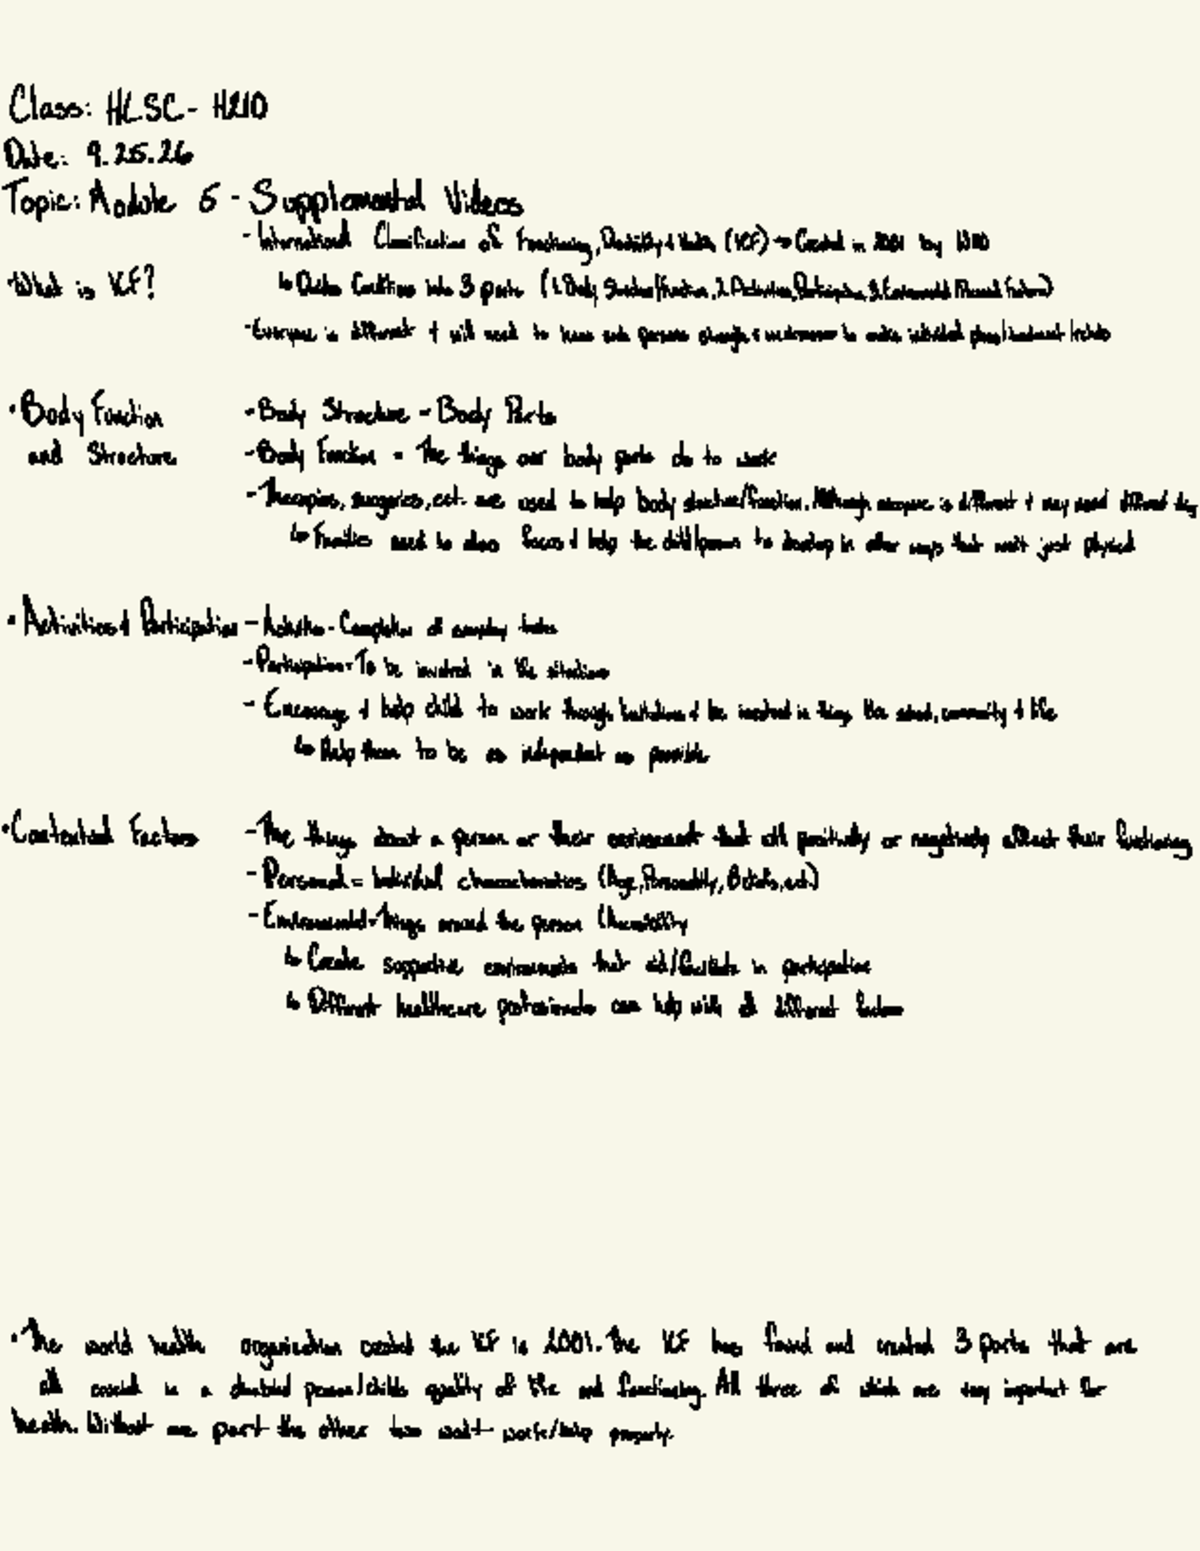 Class: HLSC - H210
Date: 9.25.26
Topic: Module 5 - Supplemental Videos
- International Classification of Functioning, Disability & Health (ICF) → Created in 2001 by WHO
What is ICF?
↳ Divides Conditions into 3 parts (1. Body Structure/Function, 2. Activities, Participation, 3. Environmental Personal Factors)
- Everyone is different & will need to learn each persons strengths & weaknesses to make individual plans/treatment
• Body Function and Structure
- Body Structure - Body Parts
- Body Function = The things our body parts do to work
- Therapies, surgeries, ect. are used to help body structure/function. Although everyone is different & may need different
↳ Families need to also focus & help the child/person to develop in other ways that not just physical
• Activities & Participation
- Activities - Completion of everyday tasks
- Participation = To be involved in life situations
- Encourage & help child to work through limitations & be involved in things like school, community & life
↳ Help them to be as independent as possible
• Contextual Factors
- The things about a person or their environment that will positively or negatively affect their functioning
- Personal = Individual characteristics (Age, Personality, Beliefs, ect.)
- Environmental = Things around the person (Accessibility
↳ Create supportive environments that aid/facilitate in participation
↳ Different healthcare professionals can help with all different factors
• The world health organization created the ICF in 2001. The ICF has found and created 3 parts that are
all crucial in a disabled person/childs quality of life and functioning. All three of which are very important for
health. Without one part the other two wont work/help properly.